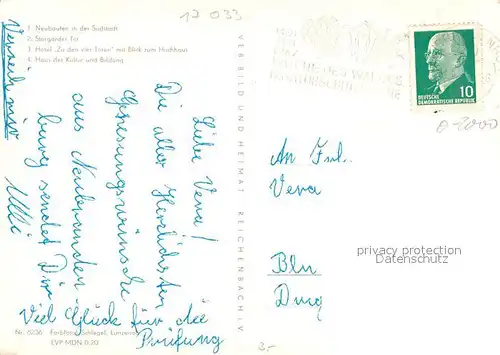 17 033
1 Neubauten in der Südstadt
2 Stargarder Tor
3 Hotel „Zu den vier Toren" mit Blick zum Hochhaus
4 Haus der Kultur und Bildung
Verzeih mir
Liebe Vera!
Die aller herzlichsten
Genesungswünsche
aus Neubrandenburg
sendet Dir
Ulli
Viel Glück für die
Prüfung
VEB BILD UND HEIMAT REICHENBACH I. V.
10
DEUTSCHE
DEMOKRATISCHE REPUBLIK
An Frl.
Vera
Bln
privacy protection
Datenschutz
Farbfoto: Schlegel,
EVP MDN 0.20
3,-